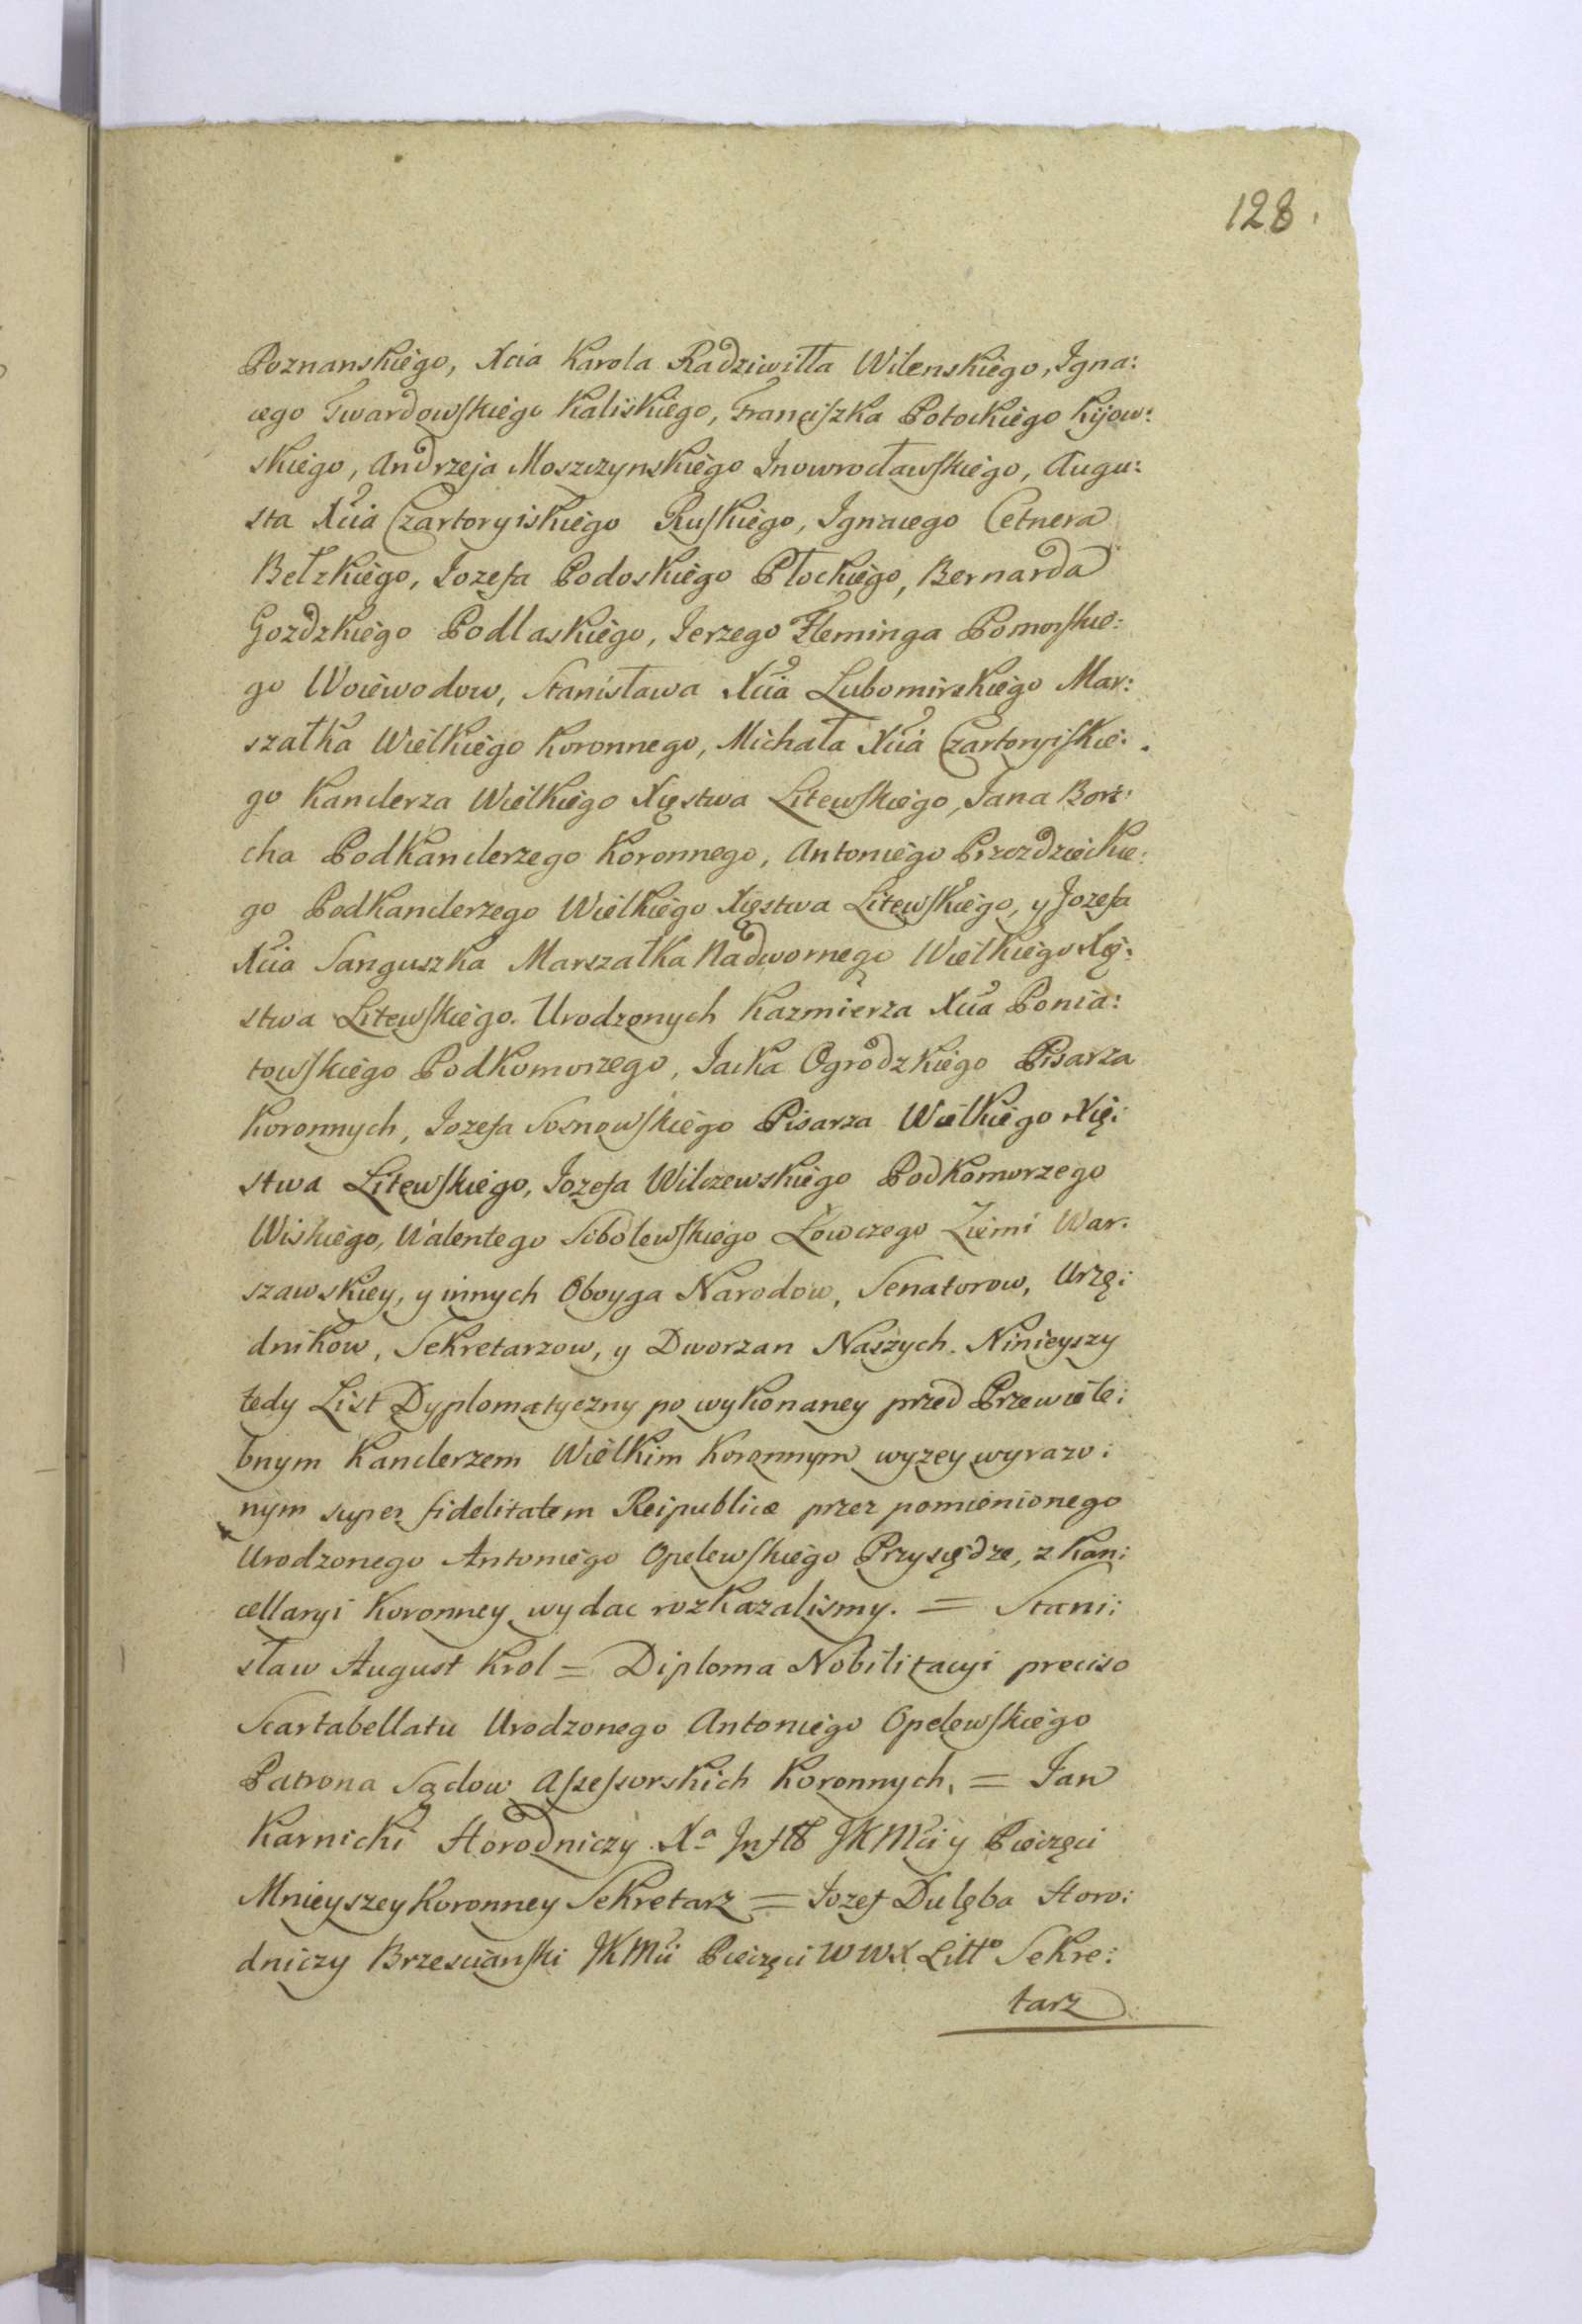 128.
Poznanskiego, Xcia Karola Radziwiłła Wilenskiego, Igna:
cego Twardowskiego Kaliskiego, Franciszka Potockiego Kijow:
skiego, Andrzeja Moszczynskiego Inowrocławskiego, Augu:
sta Xcia Czartoryiskiego Ruskiego, Ignacego Cetnera
Bełzkiego, Iozefa Podoskiego Płockiego, Bernarda
Gozdzkiego Podlaskiego, Ierzego Fleminga Pomorskie:
go Woiewodow, Stanisława Xcia Lubomirskiego Mar:
szałka Wielkiego Koronnego, Michała Xcia Czartoryiskie:
go Kanclerza Wielkiego Xięstwa Litewskiego, Iana Bor:
cha Podkanclerzego Koronnego, Antoniego Przezdzieckie:
go Podkanclerzego Wielkiego Xięstwa Litewskiego, y Jozefa
Xcia Sanguszka Marszałka Nadwornego Wielkiego Xię:
stwa Litewskiego. Urodzonych Kazmierza Xcia Ponia:
towskiego Podkomorzego, Iacka Ogrodzkiego Pisarza
Koronnych, Iozefa Sosnowskiego Pisarza Wielkiego Xię:
stwa Litewskiego, Iozefa Wilczewskiego Podkomorzego
Wiskiego, Walentego Sobolewskiego Łowczego Ziemi War:
szawskiey, y innych Oboyga Narodow, Senatorow, Urzę:
dnikow, Sekretarzow, y Dworzan Naszych. Ninieyszy
tedy List Dyplomatyczny po wykonaney przed Przewiele:
bnym Kanclerzem Wielkim Koronnym wyzey wyrazo:
nym super fidelitatem Reipublicæ przez pomienionego
Urodzonego Antoniego Opelewskiego Przysiędze, z Kan:
cellaryi Koronney wydac rozkazalismy. = Stani:
sław August Krol = Diploma Nobilitacyi preciso
Scartabellatu Urodzonego Antoniego Opelewskiego
Patrona Sądow Assessorskich Koronnych. = Ian
Karnicki Horodniczy Xa Inflt JKMci y Pieczęci
Mnieyszey Koronney Sekretarz = Iozef Dulęba Horo:
dniczy Brzescianski JKMci Pieczęci W W X Litto Sekre:
tarz